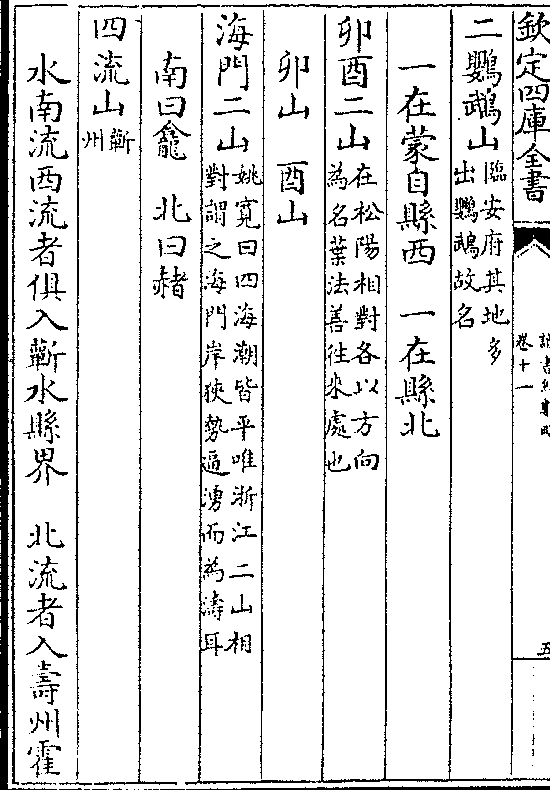 欽定四庫全書
卷十一
五
二鸚鵡山臨安府其地多出鸚鵡故名
一在蒙自縣西　一在縣北
卯酉二山在松陽相對各以方向為名葉法善往來處也
卯山　酉山
海門二山姚寬曰四海潮皆平唯浙江二山相對謂之海門岸狹勢逼湧而為濤耳
南曰龕　北曰赭
四流山蘄州
水南流西流者俱入蘄水縣界　北流者入壽州霍